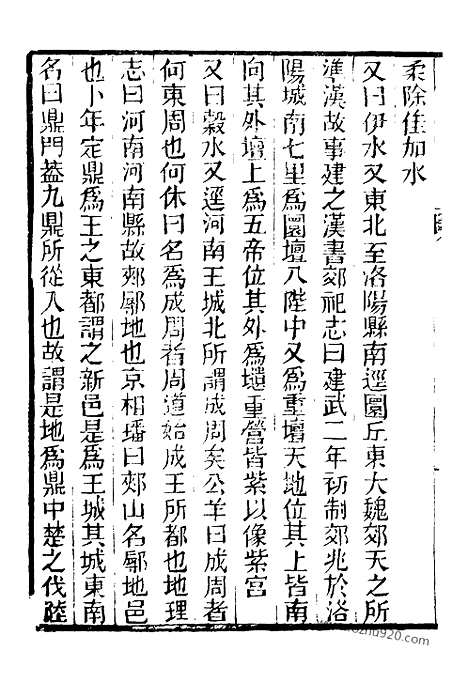 柔除隹加水
又曰伊水又東北至洛陽縣南逕圜丘東大魏郊天之所
準漢故事建之漢書郊祀志曰建武二年初制郊兆於洛
陽城南七里為圜壇八陛中又為重壇天地位其上皆南
向其外壇上為五帝位其外為壝重營皆紫以像紫宮
又曰糓水又逕河南王城北所謂成周矣公羊曰成周者
何東周也何休曰名為成周者周道始成王所都也地理
志曰河南河南縣故郟鄏地也京相璠曰郟山名鄏地邑
也卜年定鼎為王之東都謂之新邑是為王城其城東南
名曰鼎門葢九鼎所從入也故謂是地為鼎中楚之伐陸